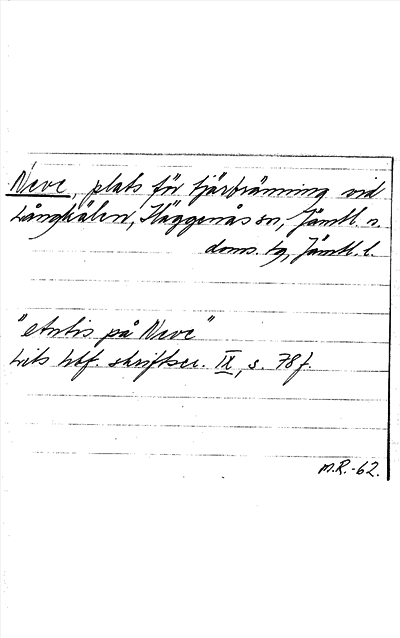 Neve, plats för tjärbränning vid
Långkälen, Häggenås sn, Jämtl. n.
doms. tg, Jämtl. l.
på Neve"
hbf. skriftser. IX, s. 78f.
M.R.-62.